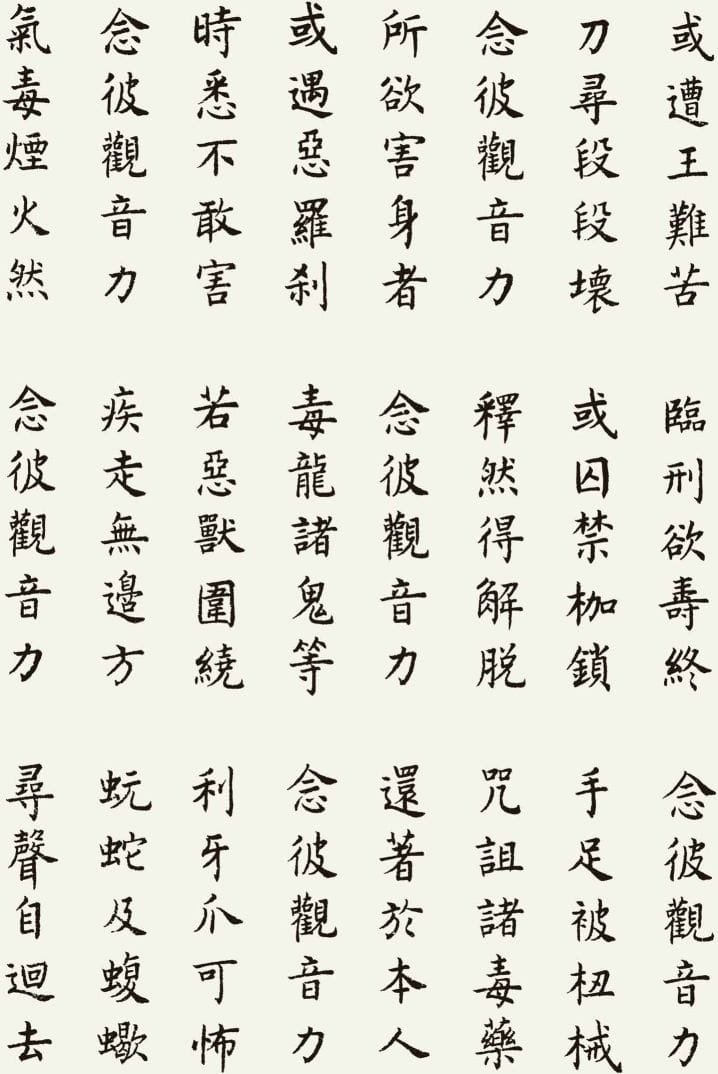 或遭王難苦 臨刑欲壽終 念彼觀音力
刀尋段段壞 或囚禁枷鎖 手足被杻械
念彼觀音力 釋然得解脱 咒詛諸毒藥
所欲害身者 念彼觀音力 還著於本人
或遇惡羅刹 毒龍諸鬼等 念彼觀音力
時悉不敢害 若惡獸圍繞 利牙爪可怖
念彼觀音力 疾走無邊方 蚖蛇及蝮蠍
氣毒煙火然 念彼觀音力 尋聲自迴去